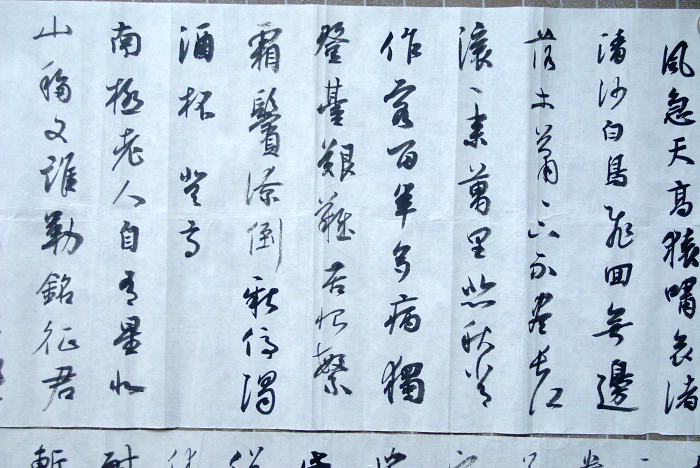 風急天高猿嘯哀渚
清沙白鳥飛回無邊
落木蕭〻下不盡長江
滾〻來萬里悲秋常
作客百年多病獨
登臺艱難苦恨繁
霜鬢潦倒新停濁
酒杯 登高
南極老人自有星北
山移文誰勒銘征君